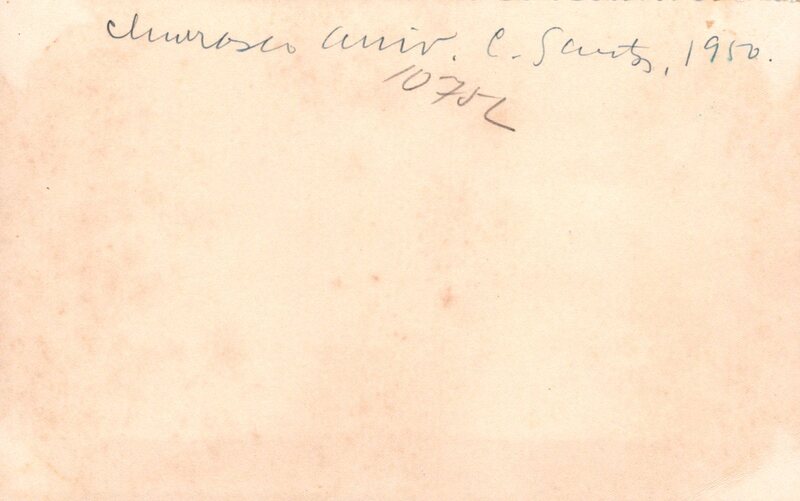 Churrasco aniv. C. Santos, 1950.
10752